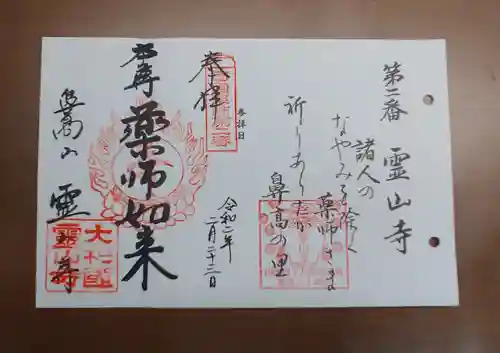 第二番 霊山寺
諸人の
なやみを除く
薬師さま
祈りあらたか
鼻高の里
参拝日
奉拝
令和二年
二月二十三日
薬師如来
鼻高山 霊山寺
大和國
霊山寺